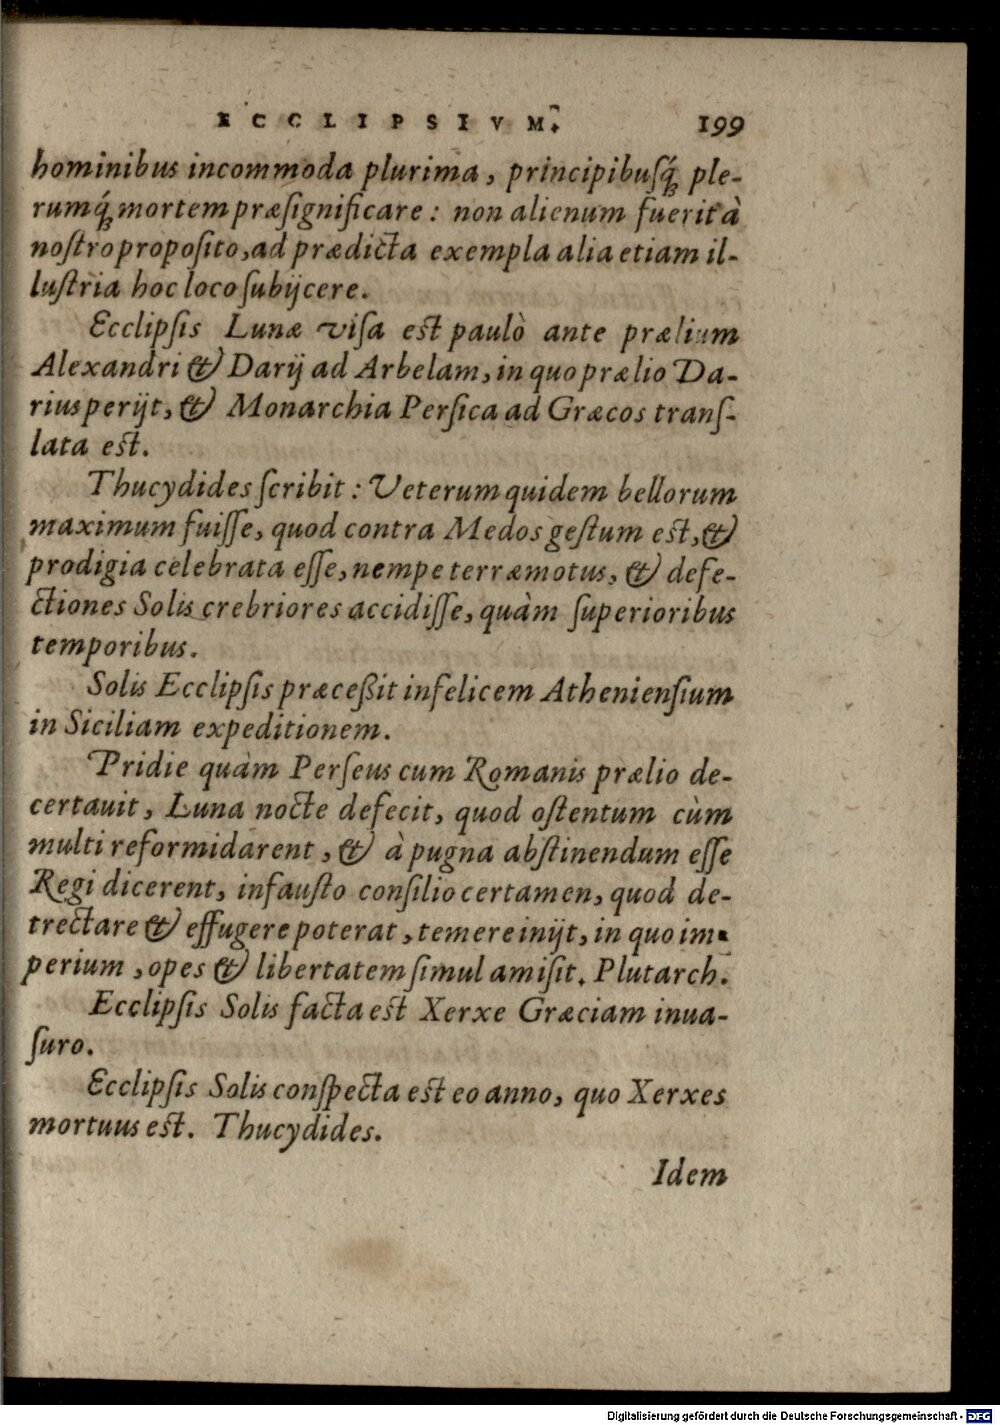 ECCLIPSIVM. 199
hominibus incommoda plurima, principibusq́ꝫ ple-
rumq́ꝫ mortem præsignificare: non alienum fuerit à
nostro proposito, ad prædicta exempla alia etiam il-
lustria hoc loco subijcere.
Ecclipsis Lunæ visa est paulò ante prælium
Alexandri & Darij ad Arbelam, in quo prælio Da-
rius perijt, & Monarchia Persica ad Græcos trans-
lata est.
Thucydides scribit: Veterum quidem bellorum
maximum fuisse, quod contra Medos gestum est, &
prodigia celebrata esse, nempe terræmotus, & defe-
ctiones Solis crebriores accidisse, quàm superioribus
temporibus.
Solis Ecclipsis præceßit infelicem Atheniensium
in Siciliam expeditionem.
Pridie quàm Perseus cum Romanis prælio de-
certauit, Luna nocte defecit, quod ostentum cùm
multi reformidarent, & à pugna abstinendum esse
Regi dicerent, infausto consilio certamen, quod de-
trectare & effugere poterat, temere inijt, in quo im-
perium, opes & libertatem simul amisit. Plutarch.
Ecclipsis Solis facta est Xerxe Græciam inua-
suro.
Ecclipsis Solis conspecta est eo anno, quo Xerxes
mortuus est. Thucydides.
Idem
Digitalisierung gefördert durch die Deutsche Forschungsgemeinschaft - DFG